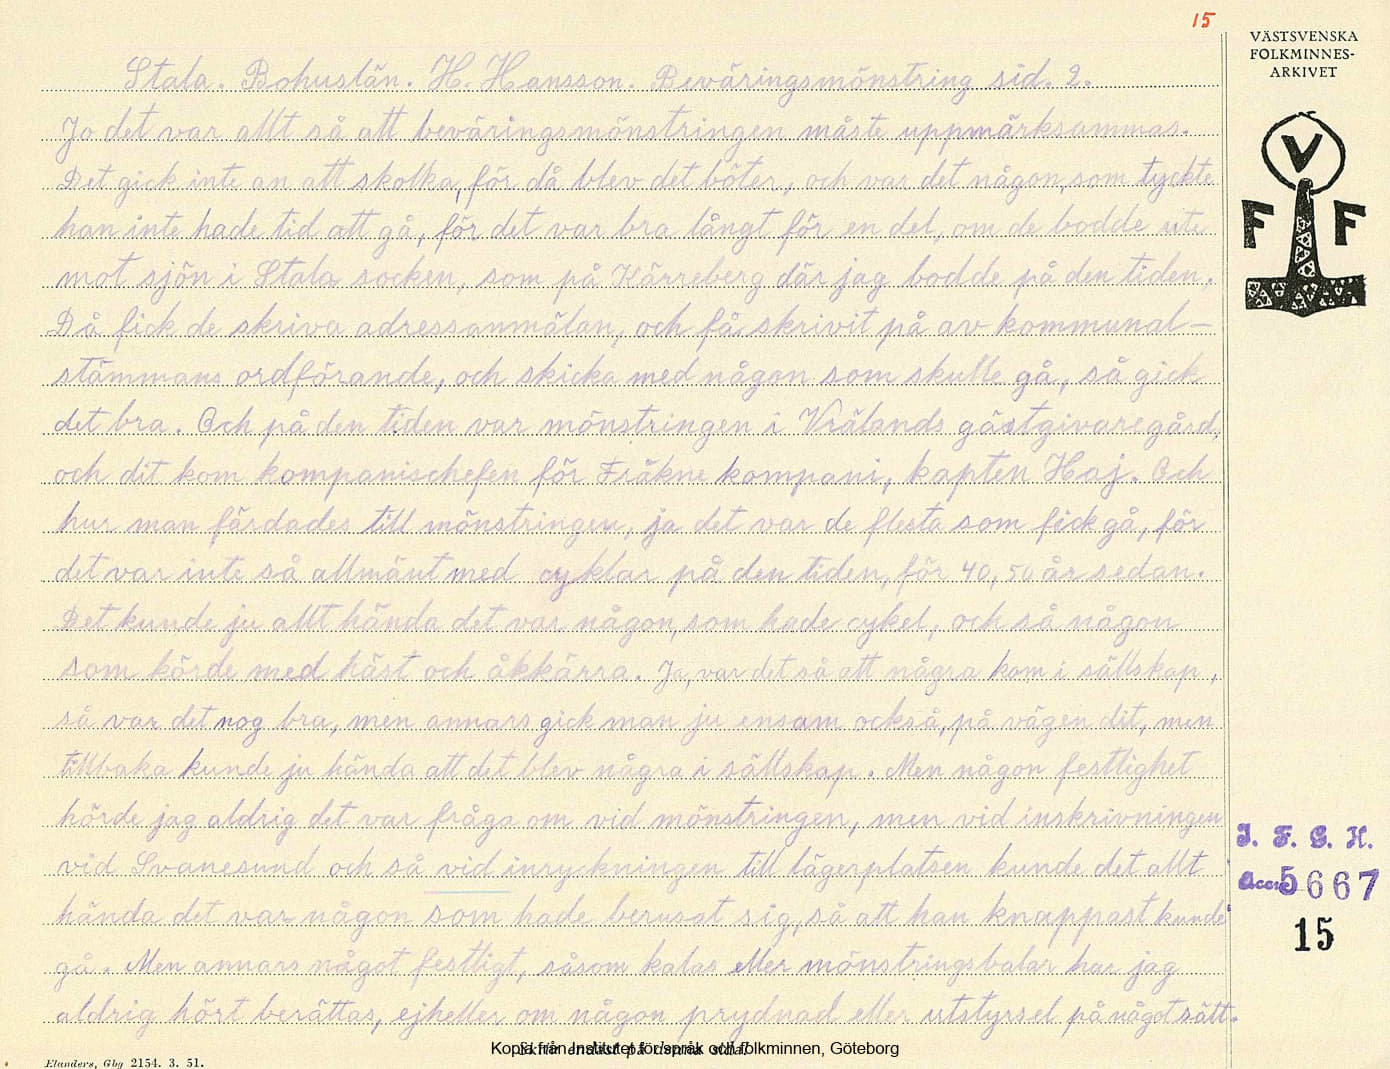 15
VÄSTSVENSKA
FOLKMINNES-
ARKIVET
V
F F
Stala. Bohuslän. H. Hansson. Beväringsmönstring sid. 2.
Jo det var allt så att beväringsmönstringen måste uppmärksammas.
Det gick inte an att skolka, för då blev det böter, och var det någon, som tyckte
han inte hade tid att gå, för det var bra långt för en del, om de bodde ute
mot sjön i Stala socken, som på Kärreberg där jag bodde på den tiden.
Då fick de skriva adressanmälan, och få skrivit på av kommunal-
stämmans ordförande, och skicka med någon som skulle gå, så gick
det bra. Och på den tiden var mönstringen i Vrälands gästgivaregård,
och dit kom kompanischefen för Fräkne kompani, kapten Haj. Och
hur man färdades till mönstringen, ja det var de flesta som fick gå, för
det var inte så allmänt med cyklar på den tiden, för 40, 50 år sedan.
Det kunde ju allt hända det var någon, som hade cykel, och så någon
som körde med häst och åkkärra. Ja, var det så att några kom i sällskap,
så var det nog bra, men annars gick man ju ensam också, på vägen dit, men
tillbaka kunde ju hända att det blev några i sällskap. Men någon festlighet
hörde jag aldrig det var fråga om vid mönstringen, men vid inskrivningen
vid Svanesund och så vid inryckningen till lägerplatsen kunde det allt
hända det var någon som hade berusat sig, så att han knappast kunde
gå. Men annars något festligt, såsom kalas eller mönstringsbalar har jag
aldrig hört berättas, ejheller om någon prydnad eller utstyrsel på något sätt.
I. F. G. H.
Acc. 5667
15
Skriv endast på denna sida!
Kopia från Institutet för språk och folkminnen, Göteborg
Elanders, Gbg 2154. 3. 51.